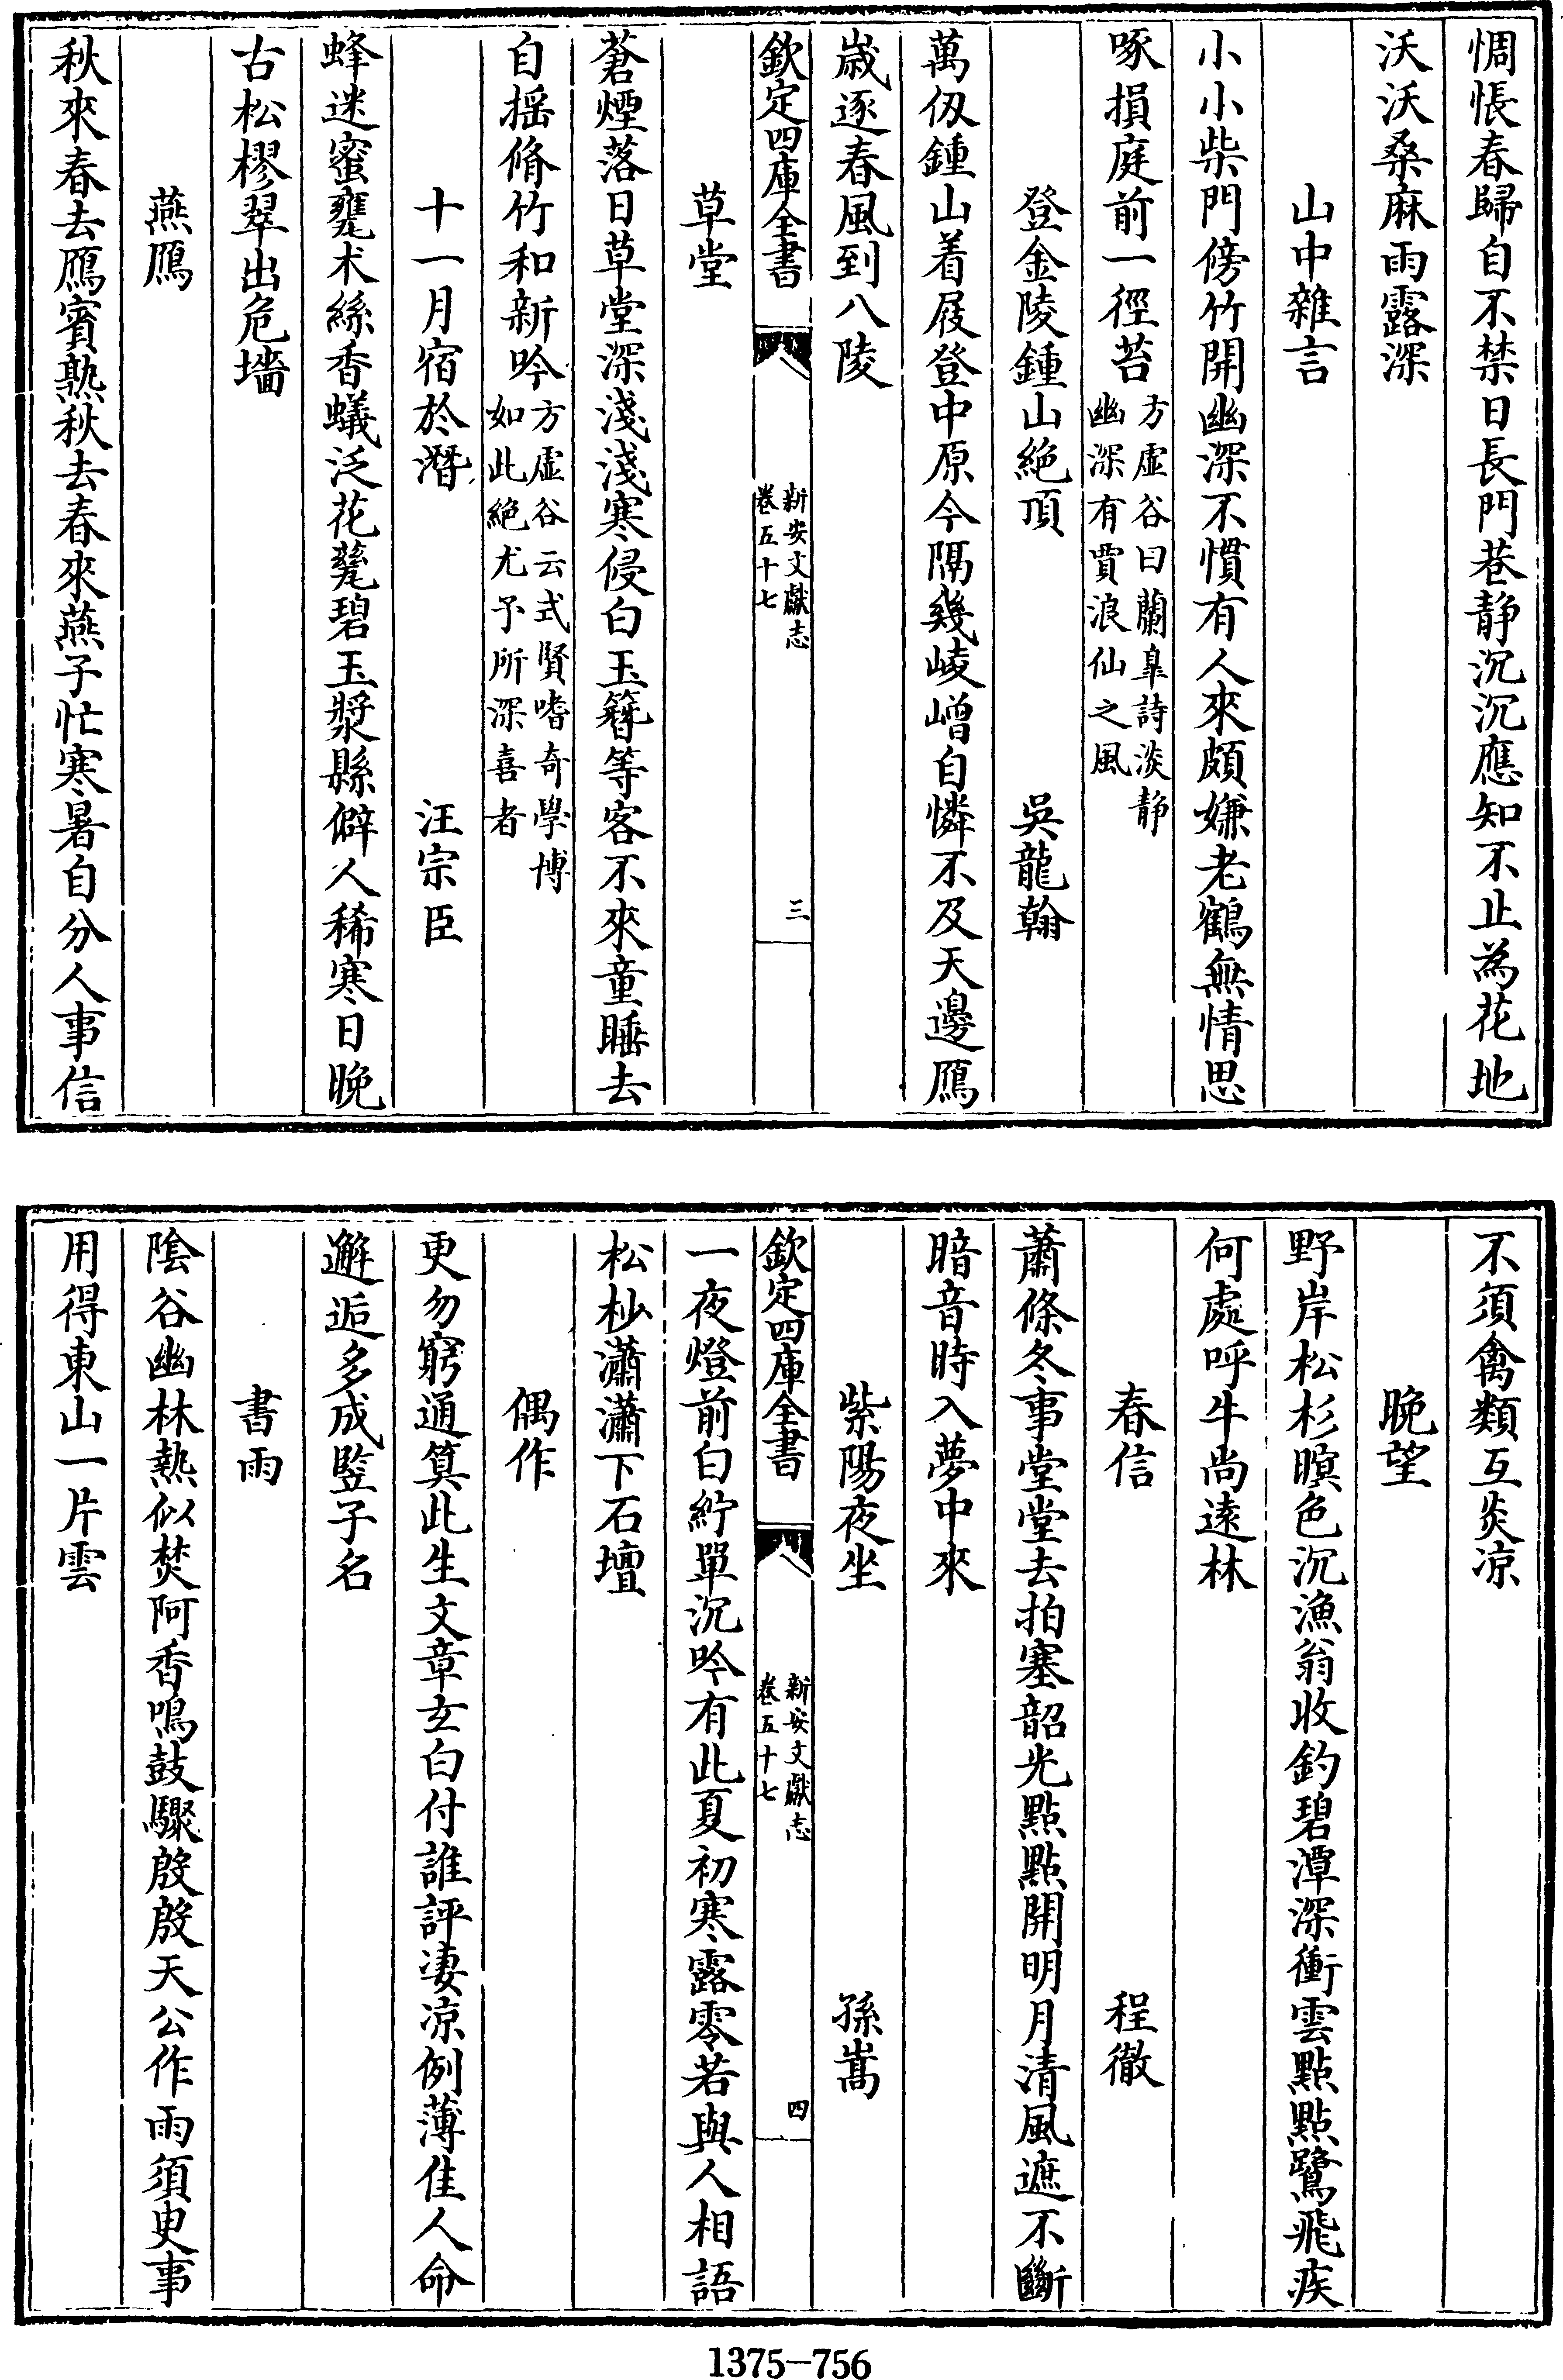 惆悵春歸自不禁日長門巷静沉沉應知不止為花地
沃沃桑麻雨露深
山中雜言
小小柴門傍竹開幽深不慣有人來頗嫌老鶴無情思
啄損庭前一徑苔方虚谷曰蘭臯詩淡静
幽深有賈浪仙之風
登金陵鍾山絶頂　吳龍翰
萬仭鍾山着屐登中原今隔幾崚嶒自憐不及天邊鴈
歲逐春風到八陵
欽定四庫全書　新安文獻志
卷五十七　三
草堂
蒼煙落日草堂深淺淺寒侵白玉簪等客不來童睡去
自揺脩竹和新吟方虚谷云式賢嗜奇學博
如此絶尤予所深喜者
十一月宿於潛　汪宗臣
蜂迷蜜甕术絲香蟻泛花甃碧玉漿縣僻人稀寒日晚
古松樛翠出危墻
燕鴈
秋來春去鴈賓熟秋去春來燕子忙寒暑自分人事信
不須禽類互炎凉
晚望
野岸松杉暝色沉漁翁收釣碧潭深衝雲點點鷺飛疾
何處呼牛尚遠林
春信　程徹
蕭條冬事堂堂去拍塞韶光點點開明月清風遮不斷
暗音時入夢中來
紫陽夜坐　孫嵩
欽定四庫全書　新安文獻志
卷五十七　四
一夜燈前白紵單沉吟有此夏初寒露零若與人相語
松杪瀟瀟下石壇
偶作
更勿窮通算此生文章玄白付誰評凄凉例薄佳人命
邂逅多成豎子名
書雨
陰谷幽林熱似焚阿香鳴鼓驟殷殷天公作雨須臾事
用得東山一片雲
1375-756